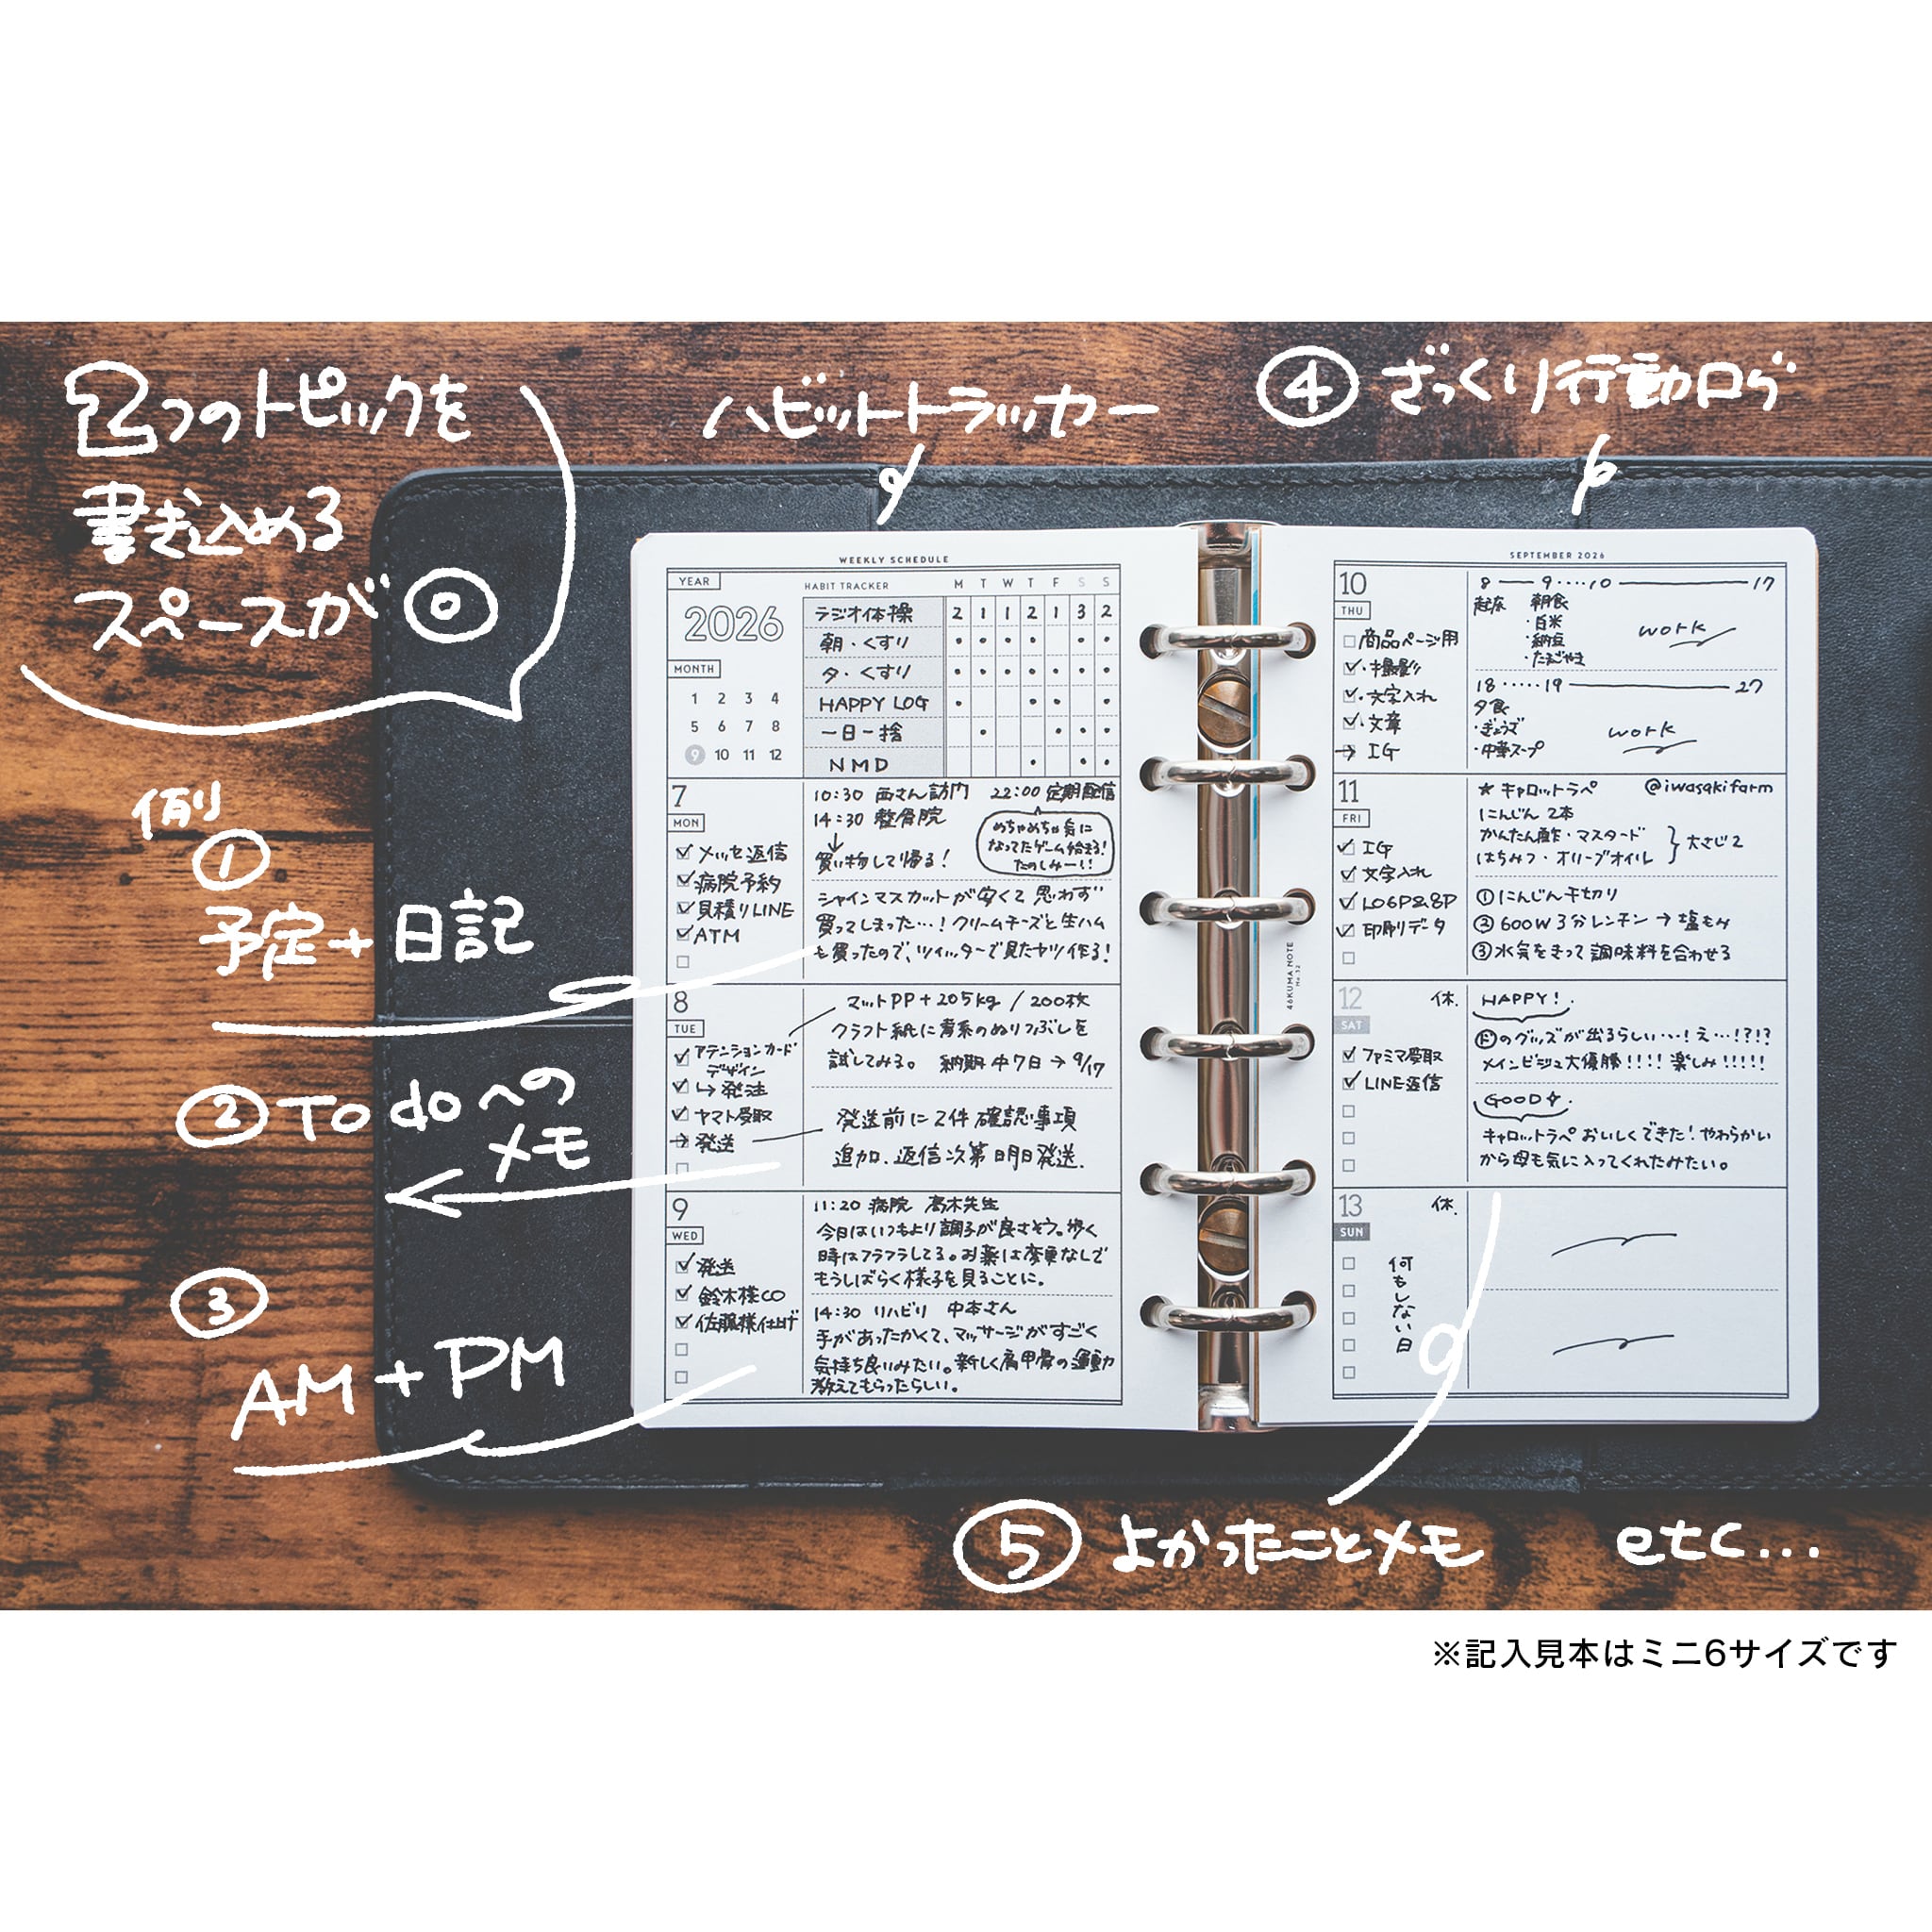 2つのトピックを
書き込める
スペースが◎
例
① 
予定+日記
② To doへの
メモ
③
AM+PM
ハビットトラッカー
④ ざっくり行動ログ
⑤ よかったことメモ
etc...
WEEKLY SCHEDULE
YEAR
2026
MONTH
1 2 3 4
5 6 7 8
9 10 11 12
HABIT TRACKER M T W T F S S
ラジオ体操 2 1 1 2 1 3 2
朝・くすり
夕・くすり
HAPPY LOG
一日一捨
NMD
7
MON
メッセ返信
病院予約
見積りLINE
ATM
10:30 西さん訪門 22:00 定期配信
14:30 整骨院
買い物して帰る!
めちゃめちゃ気に
なってたゲーム始まる!
たのしみーー!!
シャインマスカットが安くて思わず
買ってしまった…!クリームチーズと生ハム
も買ったので、ツイッターで見たヤツ作る!
8
TUE
アテンションカード
デザイン
↳発注
ヤマト受取
→発送
マットPP+205kg / 200枚
クラフト紙に青系のぬりつぶしを
試してみる。 納期 中7日→9/17
発送前に2件 確認事項
追加、返信次第明日発送。
9
WED
発送
鈴木様CO
佐藤様仕上げ
11:20 病院 高木先生
今日はいつもより調子が良さそう。歩く
時はフラフラしてる。お薬は変更なしで
もうしばらく様子を見ることに。
14:30 リハビリ 中本さん
手があったかくて、マッサージがすごく
気持ち良いみたい。新しく肩甲骨の運動
教えてもらったらしい。
46KUMA NOTE
No.32
SEPTEMBER 2026
10
THU
商品ページ用
・撮影
・文字入れ
・文章
→ IG
8 — 9 ···· 10 — 17
起床 朝食
・白米
・納豆
・たまごやき
work
18 ····· 19 — 27
夕食
・ぎょうざ
・中華スープ
work
11
FRI
IG
文字入れ
LOGP2&8P
印刷データ
★ キャロットラペ @iwasakifarm
にんじん 2本
かんたん酢・マスタード
はちみつ・オリーブオイル } 大さじ2
①にんじん千切り
②600W 3分レンチン→塩もみ
③水気をきって調味料を合わせる
12 休.
SAT
ファミマ受取
LINE返信
HAPPY!.
ⓓのグッズが出るらしい…!え…!?!?
メインビジュ大優勝!!!!楽しみ!!!!!
GOOD✧.
キャロットラペおいしくできた!やわらかい
から母も気に入ってくれたみたい。
13 休.
SUN
何もしない日
※記入見本はミニ6サイズです